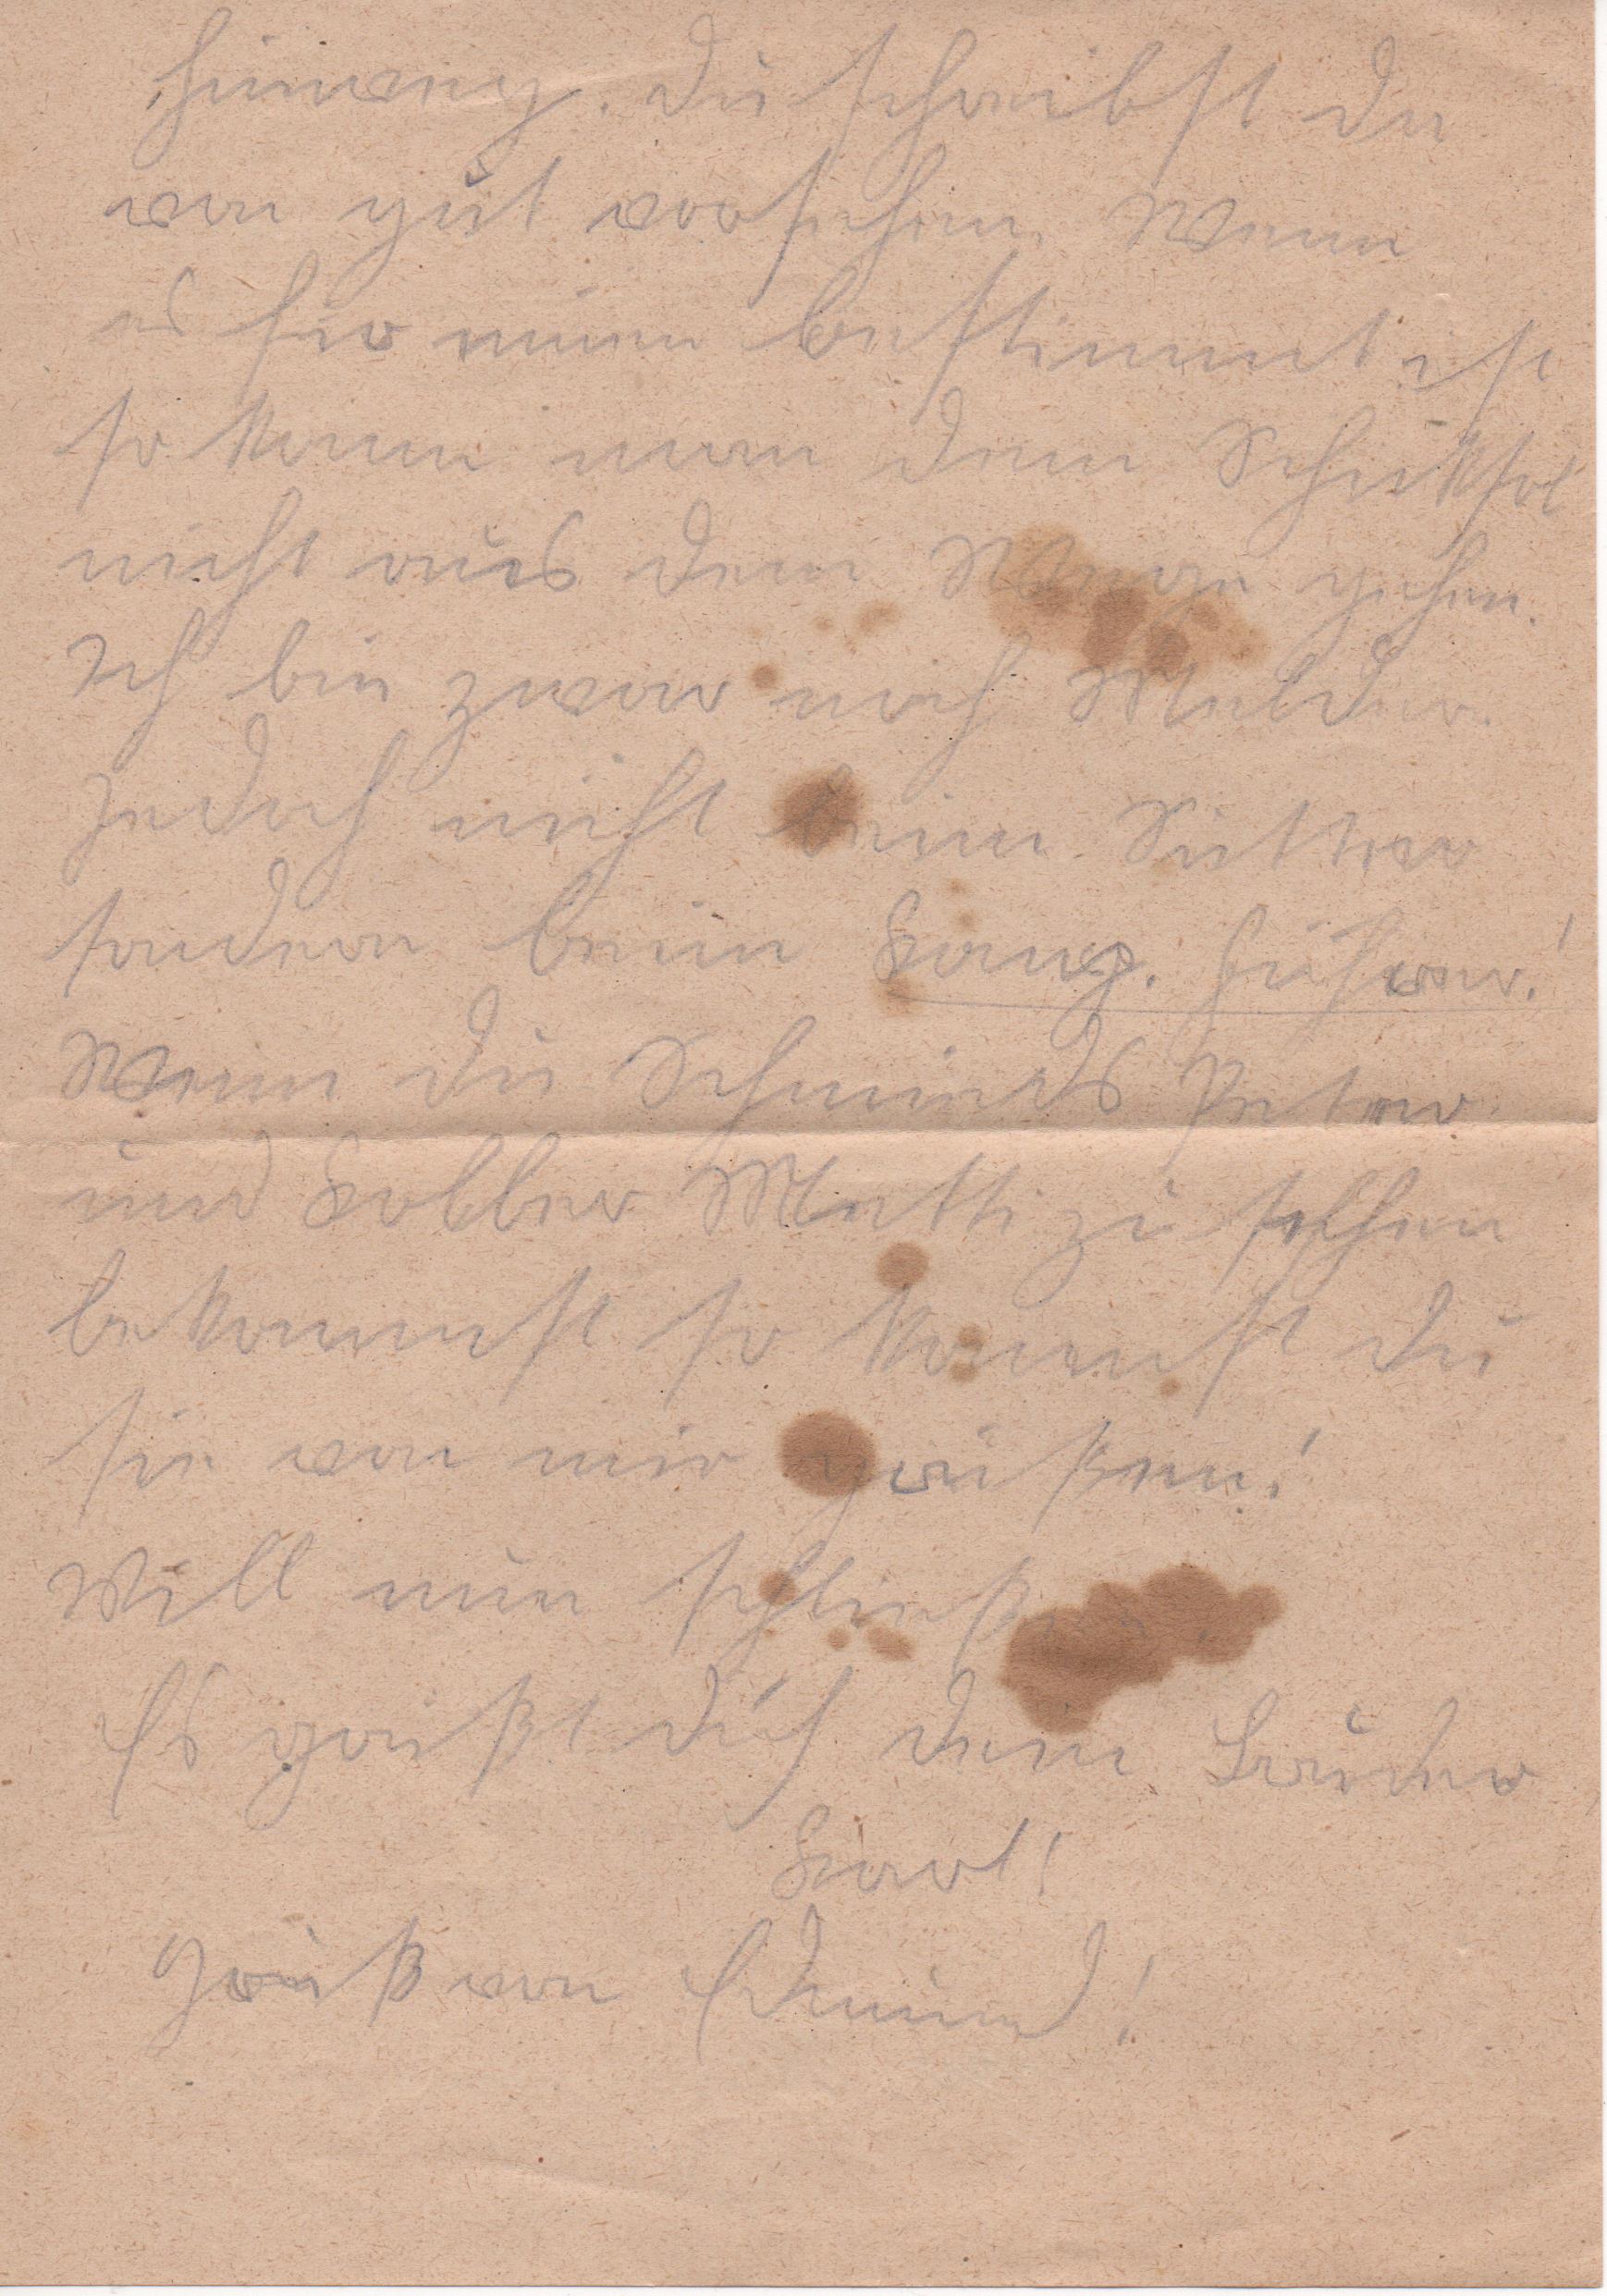 hinweg. Du schreibst du
von gut vorsehen. Wenn
es für einen bestimmt ist
so kann man dem Schiksal
nicht aus dem Wege gehen.
Ich bin zwar noch Melder.
Jedoch nicht beim
sondern beim Komp. Führer!
Wenn du Schmieds Peter
und Matth. zu sehen
bekommst so kannst du
sie von mir grüßen!
Will nun schließen.
Es grüßt dich dein Bruder
Karl!
Gruß von Edmund!